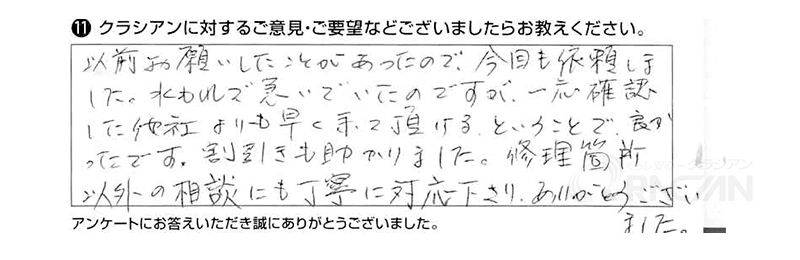 ⑪ クラシアンに対するご意見・ご要望などございましたらお教えください。
以前お願いしたことがあったので、今回も依頼しま
した。水もれで急いでいたのですが、一応確認
した他社よりも早く来て頂ける、ということで、良か
ったです。割引きも助かりました。修理箇所
以外の相談にも丁寧に対応下さり、ありがとうござい
ました。
アンケートにお答えいただき誠にありがとうございました。